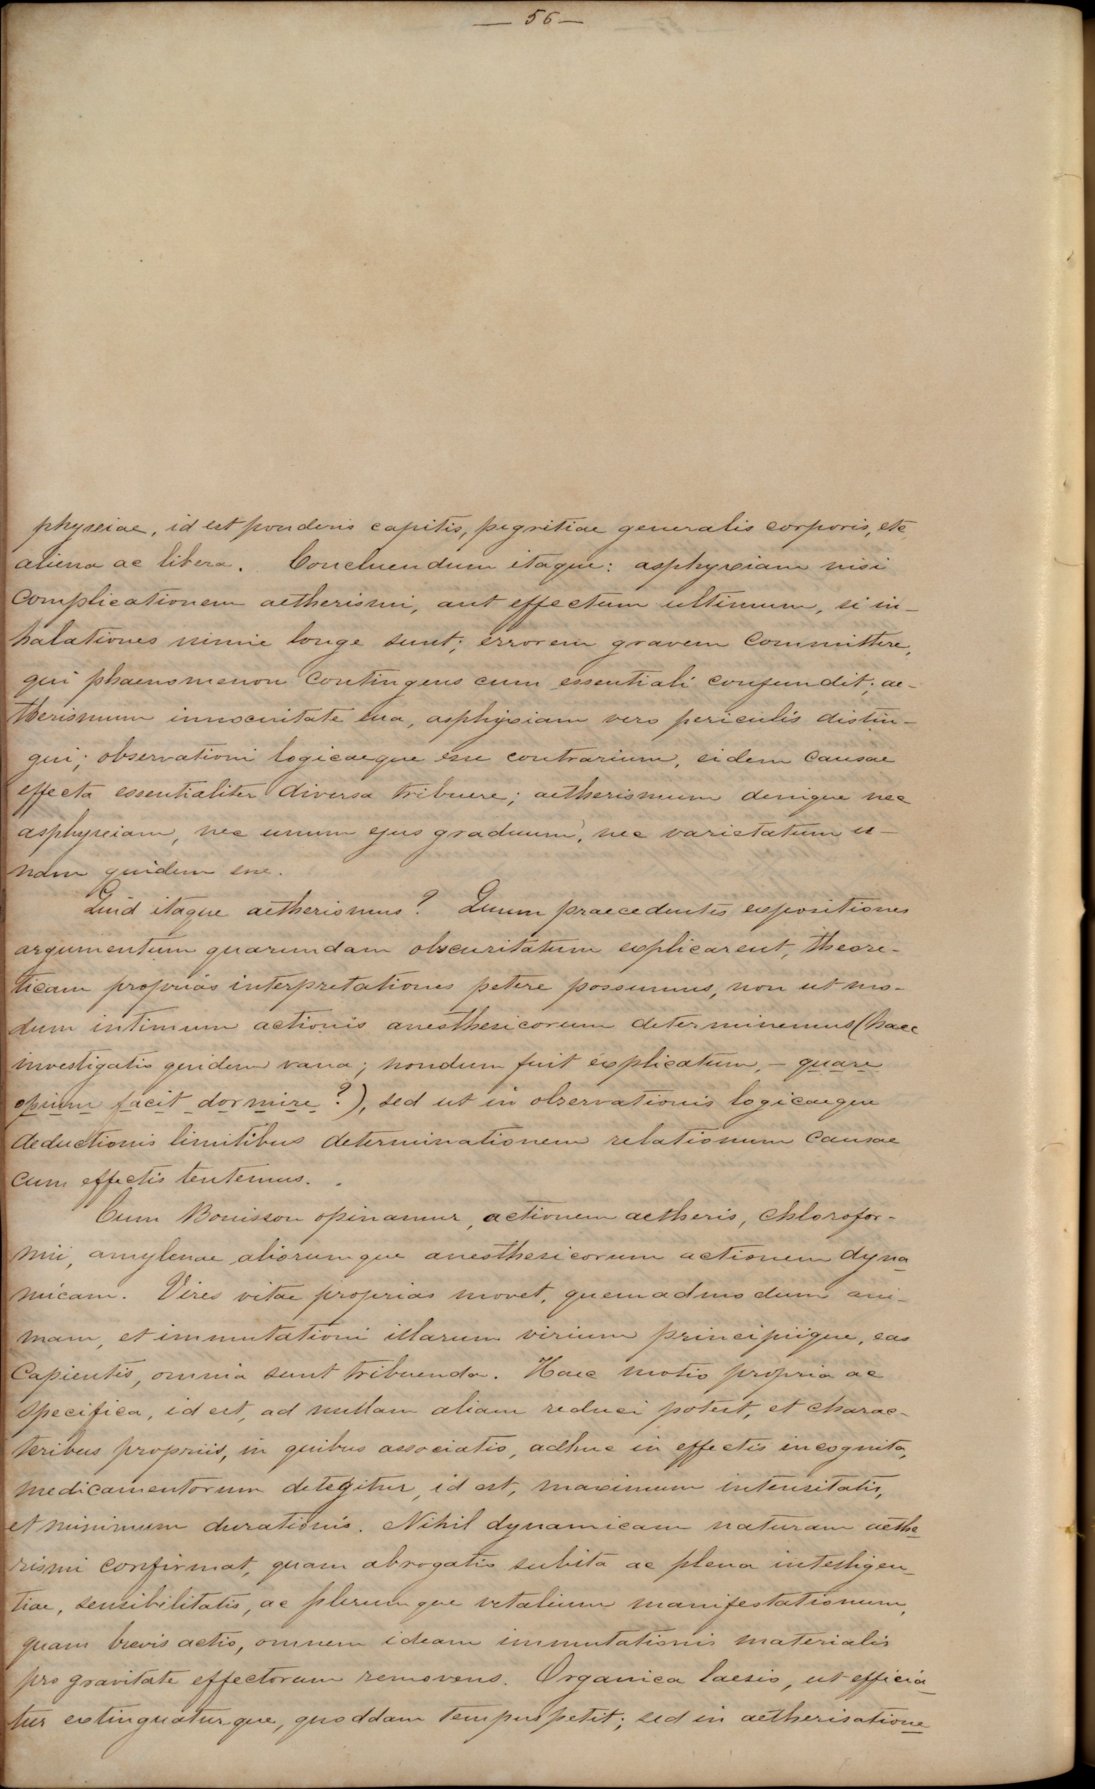 — 56 —
physeiae, id est ponderis capitis, pigritiae generalis corporis, etc
aliena ac libera. Concluendum itaque: asphyxiam nisi
complicationem aetherismi, aut effectum ultimum, si in-
halationes nimie longe sunt; errorem gravem committere,
qui phaenomenon contingens cum essentiali confundit; ae-
therismum innocuitate sua, asphyxiam vero periculis distin-
gui; observationi logicaeque esse contrarium, eidem causae
effecta essentialiter diversa tribuere; aetherismum denique nec
asphyxiam, nec unum ejus graduum, nec varietatum u-
nam quidem esse.
Quid itaque aetherismus? Quum praecedentes expositiones
argumentum quarumdam obscuritatum explicarent, theore-
ticam proprias interpretationes petere possumus, non ut mo-
dum intimum actionis anesthesicorum determinemus (haec
investigatio quidem vana; nondum fuit explicatum, – quare
opium facit dormire?), sed ut in observationis logicaeque
deductionis limitibus determinationem relationum causae
cum effectis tentemus.
Cum Bouisson opinamur, actionem aetheris, chlorofor-
mii, amylenae aliorumque anesthesicorum actionem dyna
micam. Vires vitae proprias movet, quemadmodum ani-
mam, et immutationi illarum virium principiique, eas
capientis, omnia sunt tribuenda. Haec motio propria ac
specifica, id est, ad nullam aliam reduci potest, et charac-
teribus propriis, in quibus associatio, adhuc in effectis incognita,
medicamentorum detegitur, id est, maximum intensitatis,
et minimum durationis. Nihil dynamicam naturam aethe
rismi confirmat, quam abrogatio subita ac plena intelligen-
tiae, sensibilitatis, ac plerumque vitalium manifestationum,
quam brevis actio, omnem ideam immutationis materialis
pro gravitate effectorum removens. Organica laesio, ut efficia-
tur extinguaturque, quoddam tempus petit; sed in aetherisatione